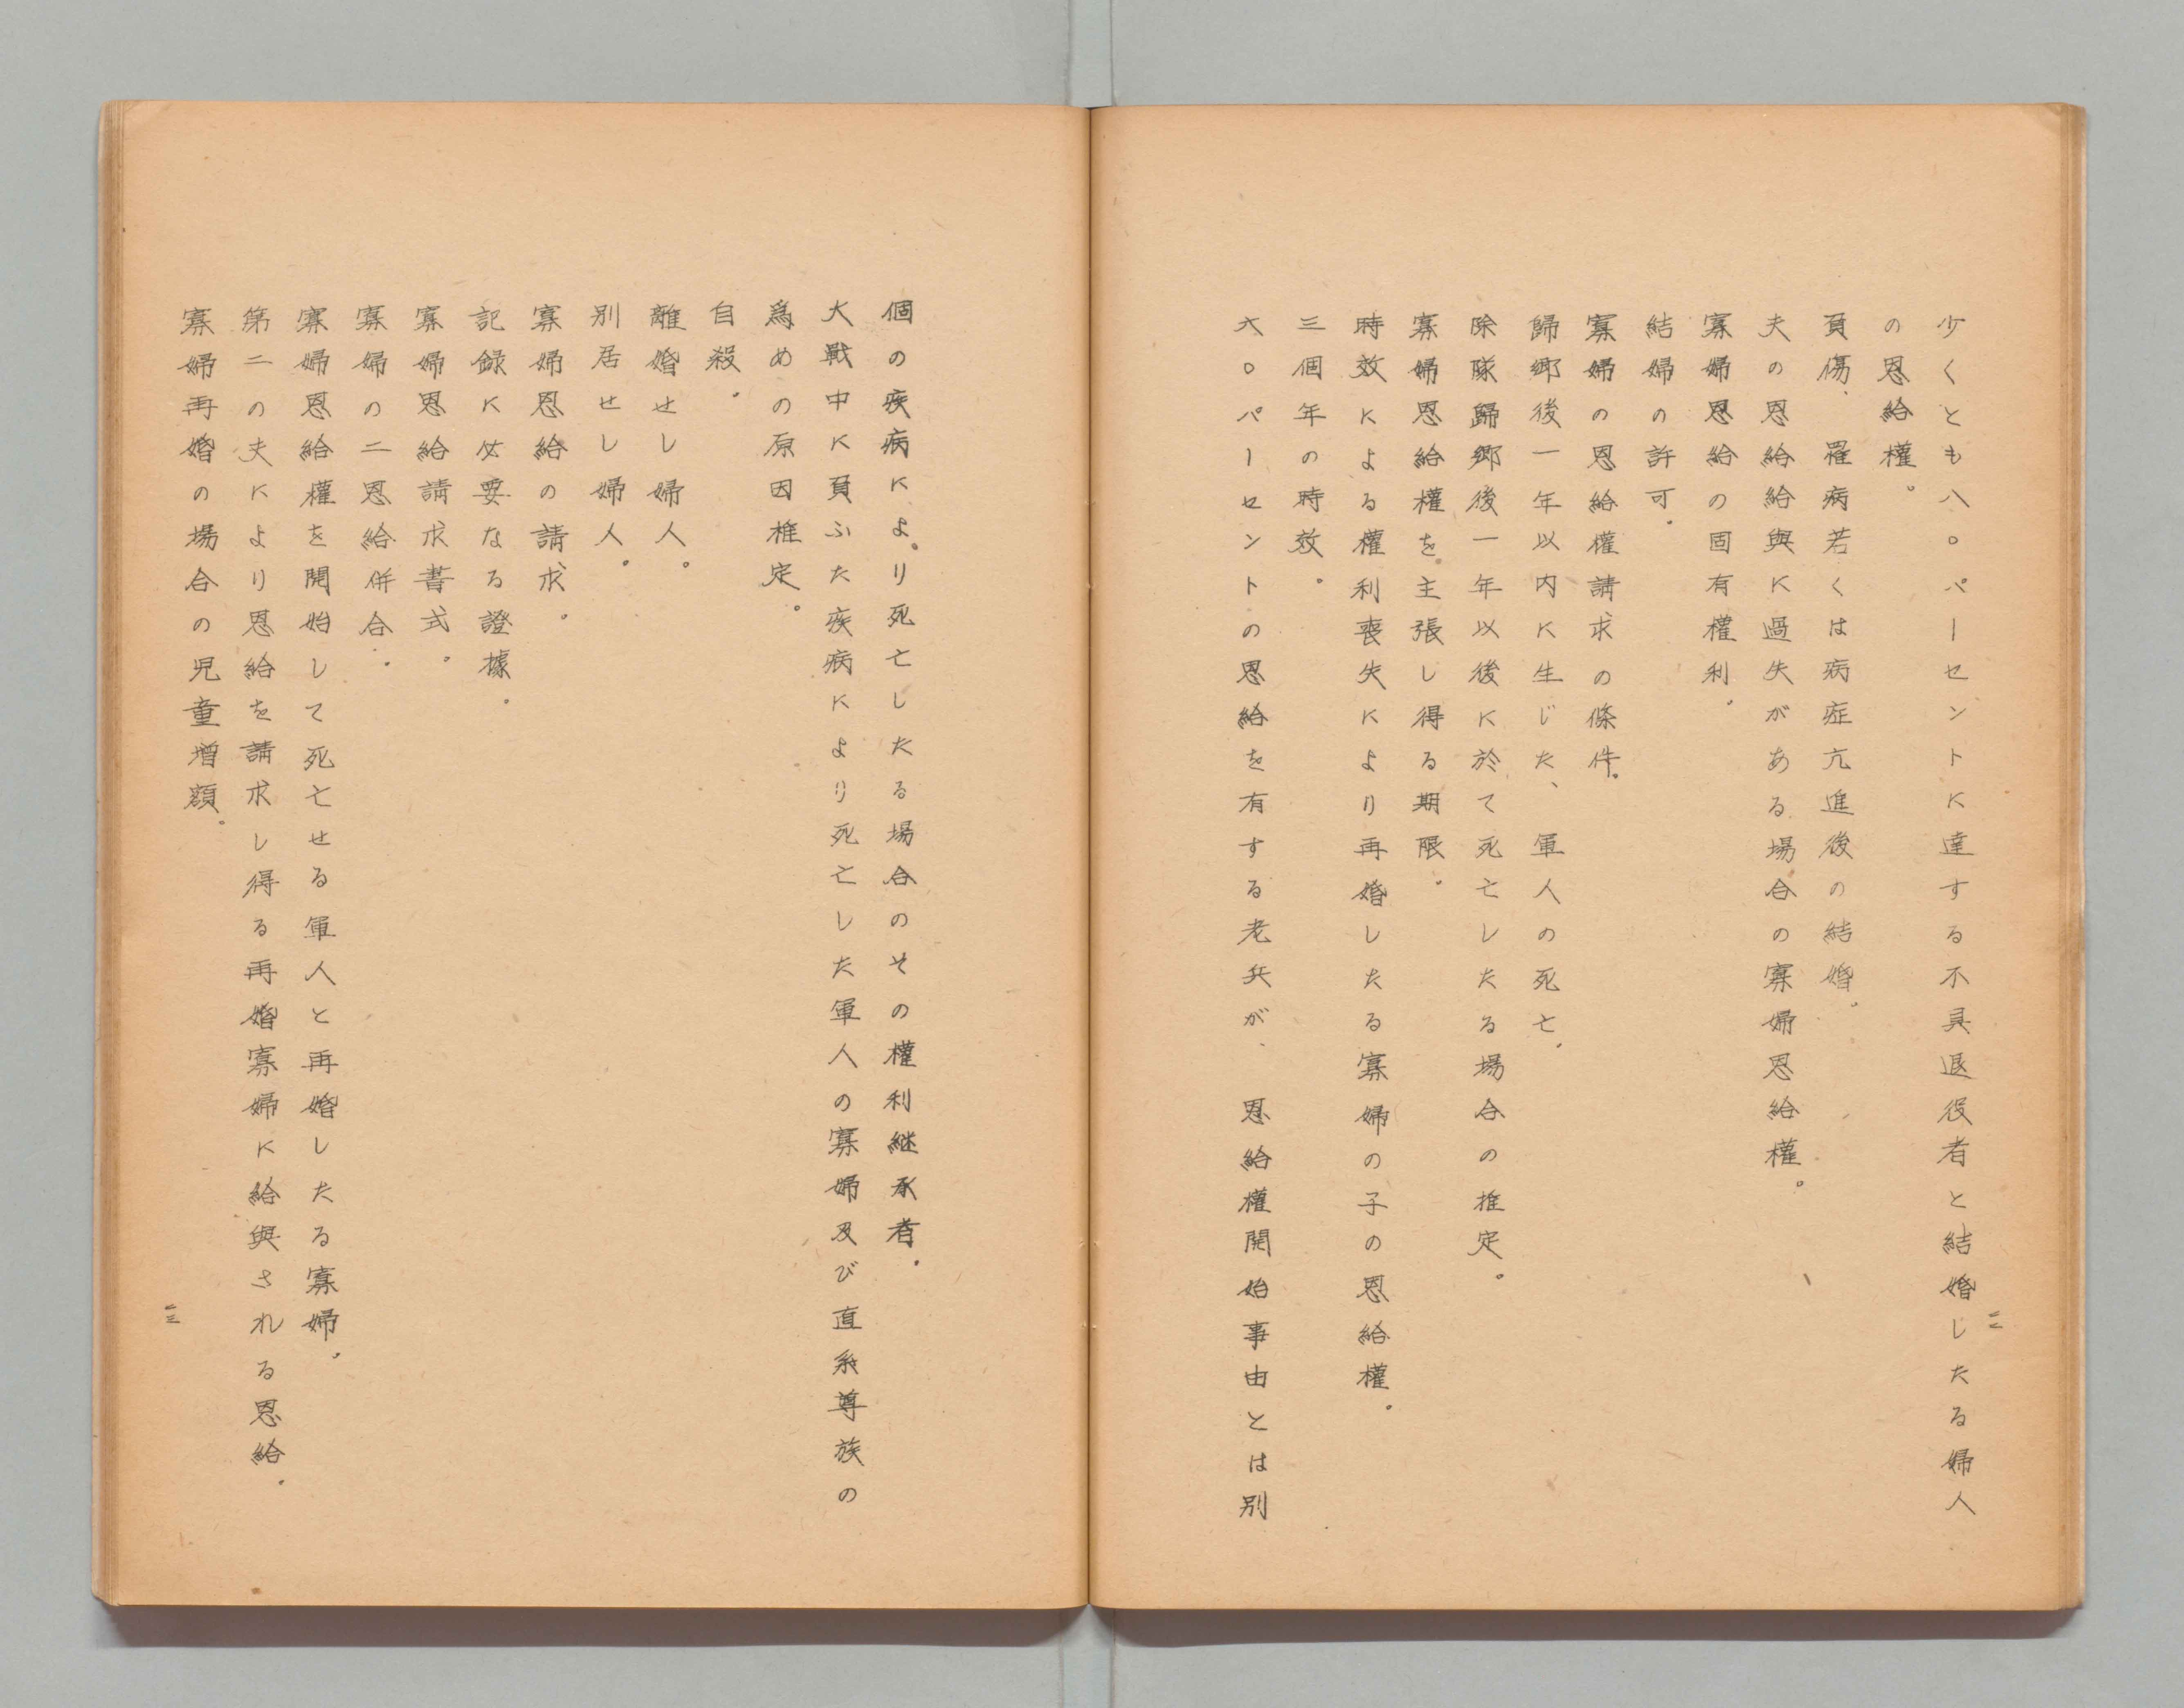 少くとも八〇パーセントに達する不具退役者と結婚したる婦人
の恩給權。
負傷、罹病若くは病症亢進後の結婚。
夫の恩給給與に過失がある場合の寡婦恩給權。
寡婦恩給の固有權利。
結婦の許可。
寡婦の恩給權請求の條件。
歸郷後一年以内に生じた、軍人の死亡。
除隊歸郷後一年以後に於て死亡したる場合の推定。
寡婦恩給權を主張し得る期限。
時效による權利喪失により再婚したる寡婦の子の恩給權。
三個年の時效。
六〇パーセントの恩給を有する老兵が、恩給權開始事由とは別
一二
個の疾病により死亡したる場合のその權利継承者。
大戰中に負ふた疾病により死亡した軍人の寡婦及び直系尊族の
爲めの原因椎定。
自殺。
離婚せし婦人。
別居せし婦人。
寡婦恩給の請求。
記録に必要なる證據。
寡婦恩給請求書式。
寡婦の二恩給併合。
寡婦恩給權を開始して死亡せる軍人と再婚したる寡婦。
第二の夫により恩給を請求し得る再婚寡婦に給與される恩給。
寡婦再婚の場合の児童増額。
一三